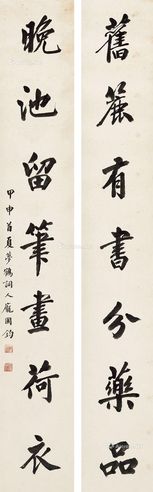 舊簏有書分藥品
晚池留筆畫荷衣
甲申首夏夢鶴詞人龐國鈞